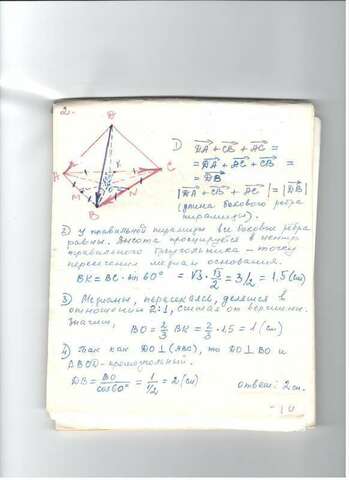 2.
D
A
B
C
K
M
N
1) DA + CB + AC =
= DA + AC + CB =
= DB
|DA + CB + AC| = |DB|
(длина бокового ребра
пирамиды).
2) У правильной пирамиды все боковые ребра
равны. Высота проецируется в центр
правильного треугольника – точку
пересечения медиан основания.
BK = BC · sin 60° = √3 · √3/2 = 3/2 = 1,5 (см)
3) Медианы, пересекаясь, делятся в
отношении 2:1, считая от вершины.
Значит,
BO = 2/3 BK = 2/3 · 1,5 = 1 (см)
4) Так как DO ⊥ (ABC), то DO ⊥ BO и
△BOD – прямоугольный.
DB = BO/cos60° = 1/(1/2) = 2 (см)
ответ: 2 см.